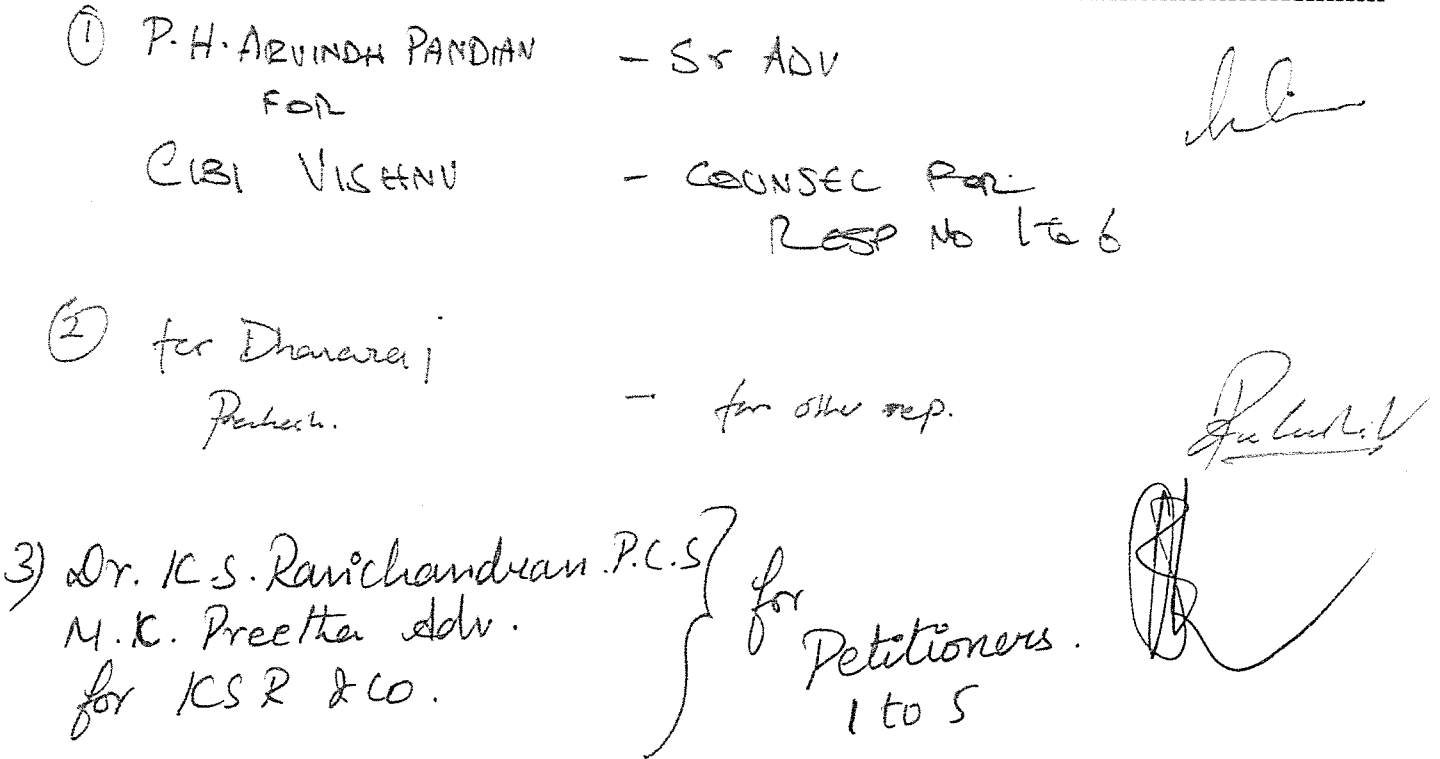 ① P.H. ARVINDH PANDIAN - Sr ADV
FOR
CIBI VISHNU - COUNSEL FOR
RESP No 1 to 6
② for Dhanaraj
Prakash. - for other resp.
3) Dr. K.S. Ravichandran. P.C.S
M.K. Preetha Adv.
for KSR & CO.
for
Petitioners.
1 to 5